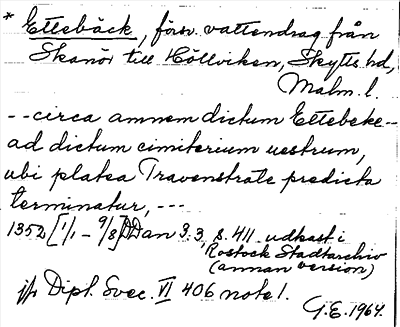 * Ettebäck, försv. vattendrag från
Skanör till Höllviken, Skytts hd,
Malm. l.
-- circa amnem dictum Ettebeke --
ad dictum cimiterium uestrum,
ubi platea Travenstrate predicta
terminatur, ---
1352 [1/1 - 9/8] DDan 3.3, s. 411 udkast i
Rostock Stadtarchiv
(annan version)
jfr Dipl. Svec. VI 406 note 1.
G.E. 1964.